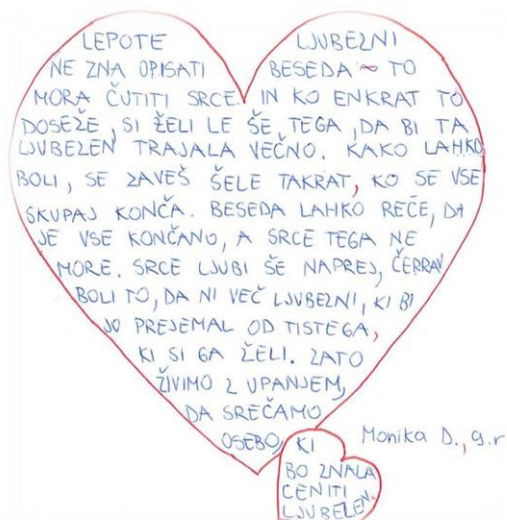 LEPOTE LJUBEZNI
NE ZNA OPISATI BESEDA ~ TO
MORA ČUTITI SRCE. IN KO ENKRAT TO
DOSEŽE, SI ŽELI LE ŠE TEGA, DA BI TA
LJUBEZEN TRAJALA VEČNO. KAKO LAHKO
BOLI, SE ZAVEŠ ŠELE TAKRAT, KO SE VSE
SKUPAJ KONČA. BESEDA LAHKO REČE, DA
JE VSE KONČANO, A SRCE TEGA NE
MORE. SRCE LJUBI ŠE NAPREJ, ČEPRAV
BOLI TO, DA NI VEČ LJUBEZNI, KI BI
JO PREJEMAL OD TISTEGA,
KI SI GA ŽELI. ZATO
ŽIVIMO Z UPANJEM,
DA SREČAMO
OSEBO, KI
BO ZNALA
CENITI
LJUBEZEN.
Monika D., 9.r